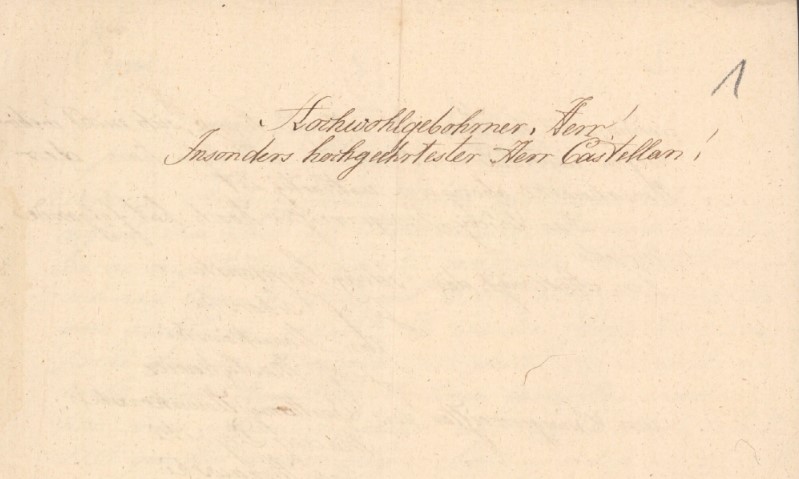 1
Hochwohlgebohrner, Herr!
Insonders hochgeehrtester Herr Castellan!